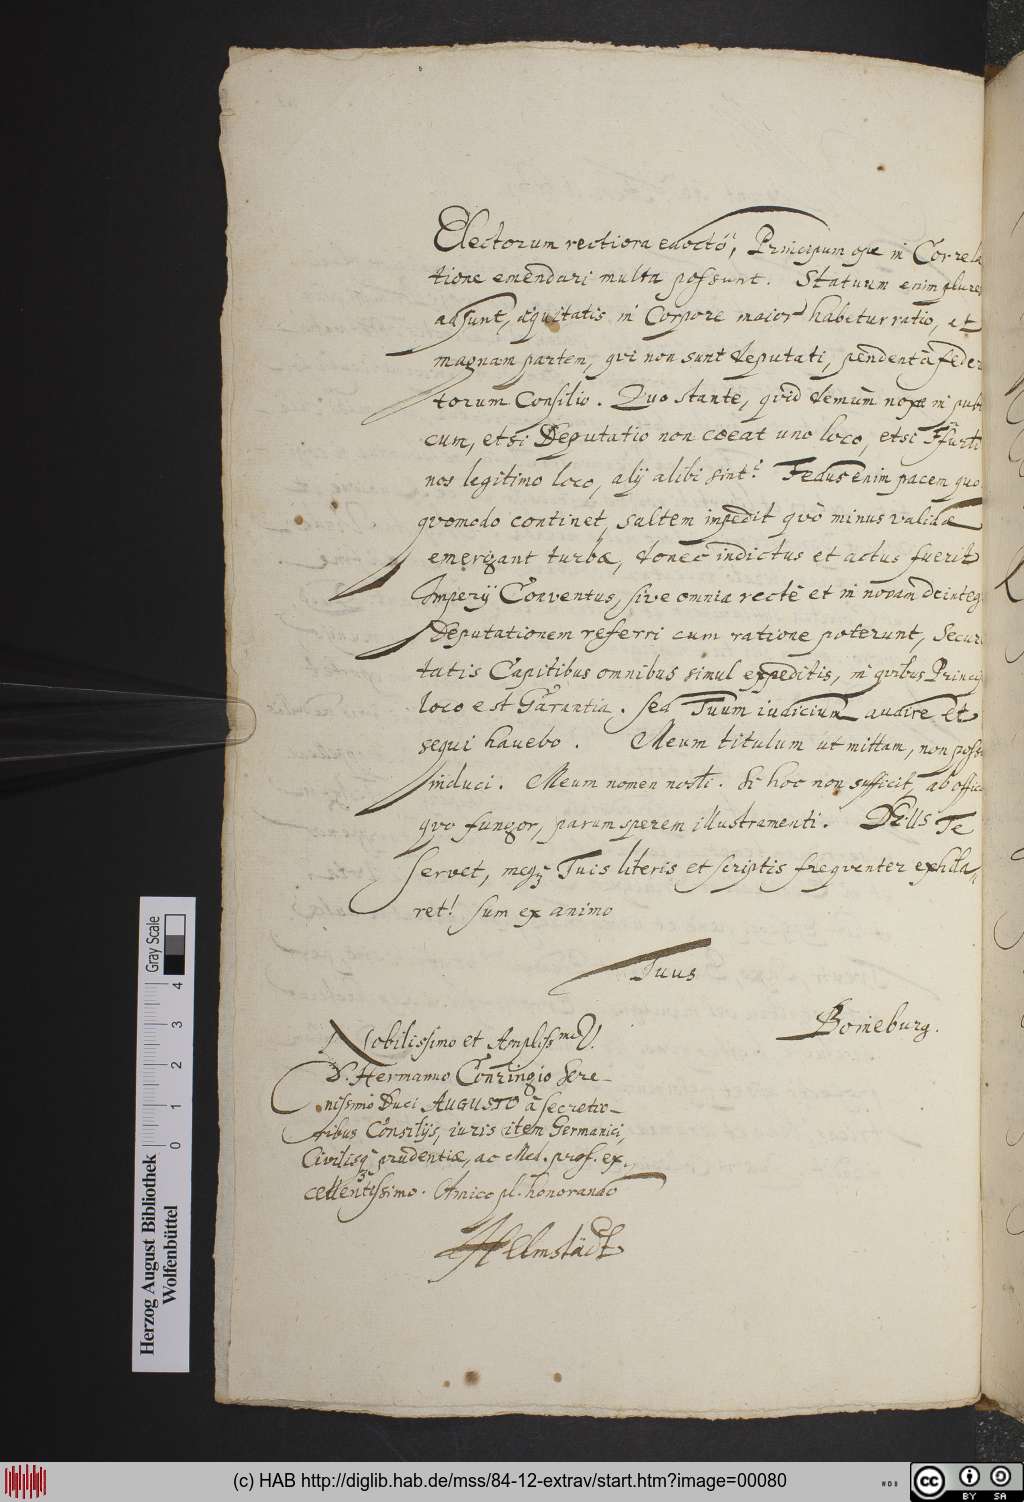 Electorum rectiora edoctor, Principum ope in Correla
tione emendari multa possunt. Statuum enim plures
adsunt, æquitatis in Corpore maior habetur ratio, et
magnam partem, qui non sunt deputati, pendent à feder
torum Consilio. Quo stante, quid demùm noxæ in publi
cum, etsi Deputatio non coeat uno loco, etsi
nos legitimo loco, alij alibi sint? Fedus enim pacem quo
quomodo continet, saltem impedit quò minus validæ
emergant turbæ, donec indictus et actus fuerit
Imperij Conventus, sive omnia rectè et in novam deinteg
Deputationem referri cum ratione poterunt, Securi
tatis Capitibus omnibus simul expeditis, in quibus Princip
loco est Garantia. Sed Tuum iudicium audire et
sequi havebo. Meum titulum ut mittam, non possu
induci. Meum nomen nosti. Si hoc non sufficit, ab offici
quo fungor, parum sperem illustramenti. DEUS Te
servet, meq; Tuis literis et scriptis frequenter exhila
ret! Sum ex animo
Tuus
Boineburg.
Nobilissimo et Ampliss.mo
D. Hermanno Conringio Sere-
nissimo Duci AUGUSTO à secretio-
ribus Consilijs, iuris item Germanici,
Civilisq; prudentiæ, ac Med. prof. ex-
cellentissimo. Amico pl. honorando
Helmstädt
Herzog August Bibliothek
Wolfenbüttel
0 1 2 3 4
Gray Scale
(c) HAB http://diglib.hab.de/mss/84-12-extrav/start.htm?image=00080
cc BY SA